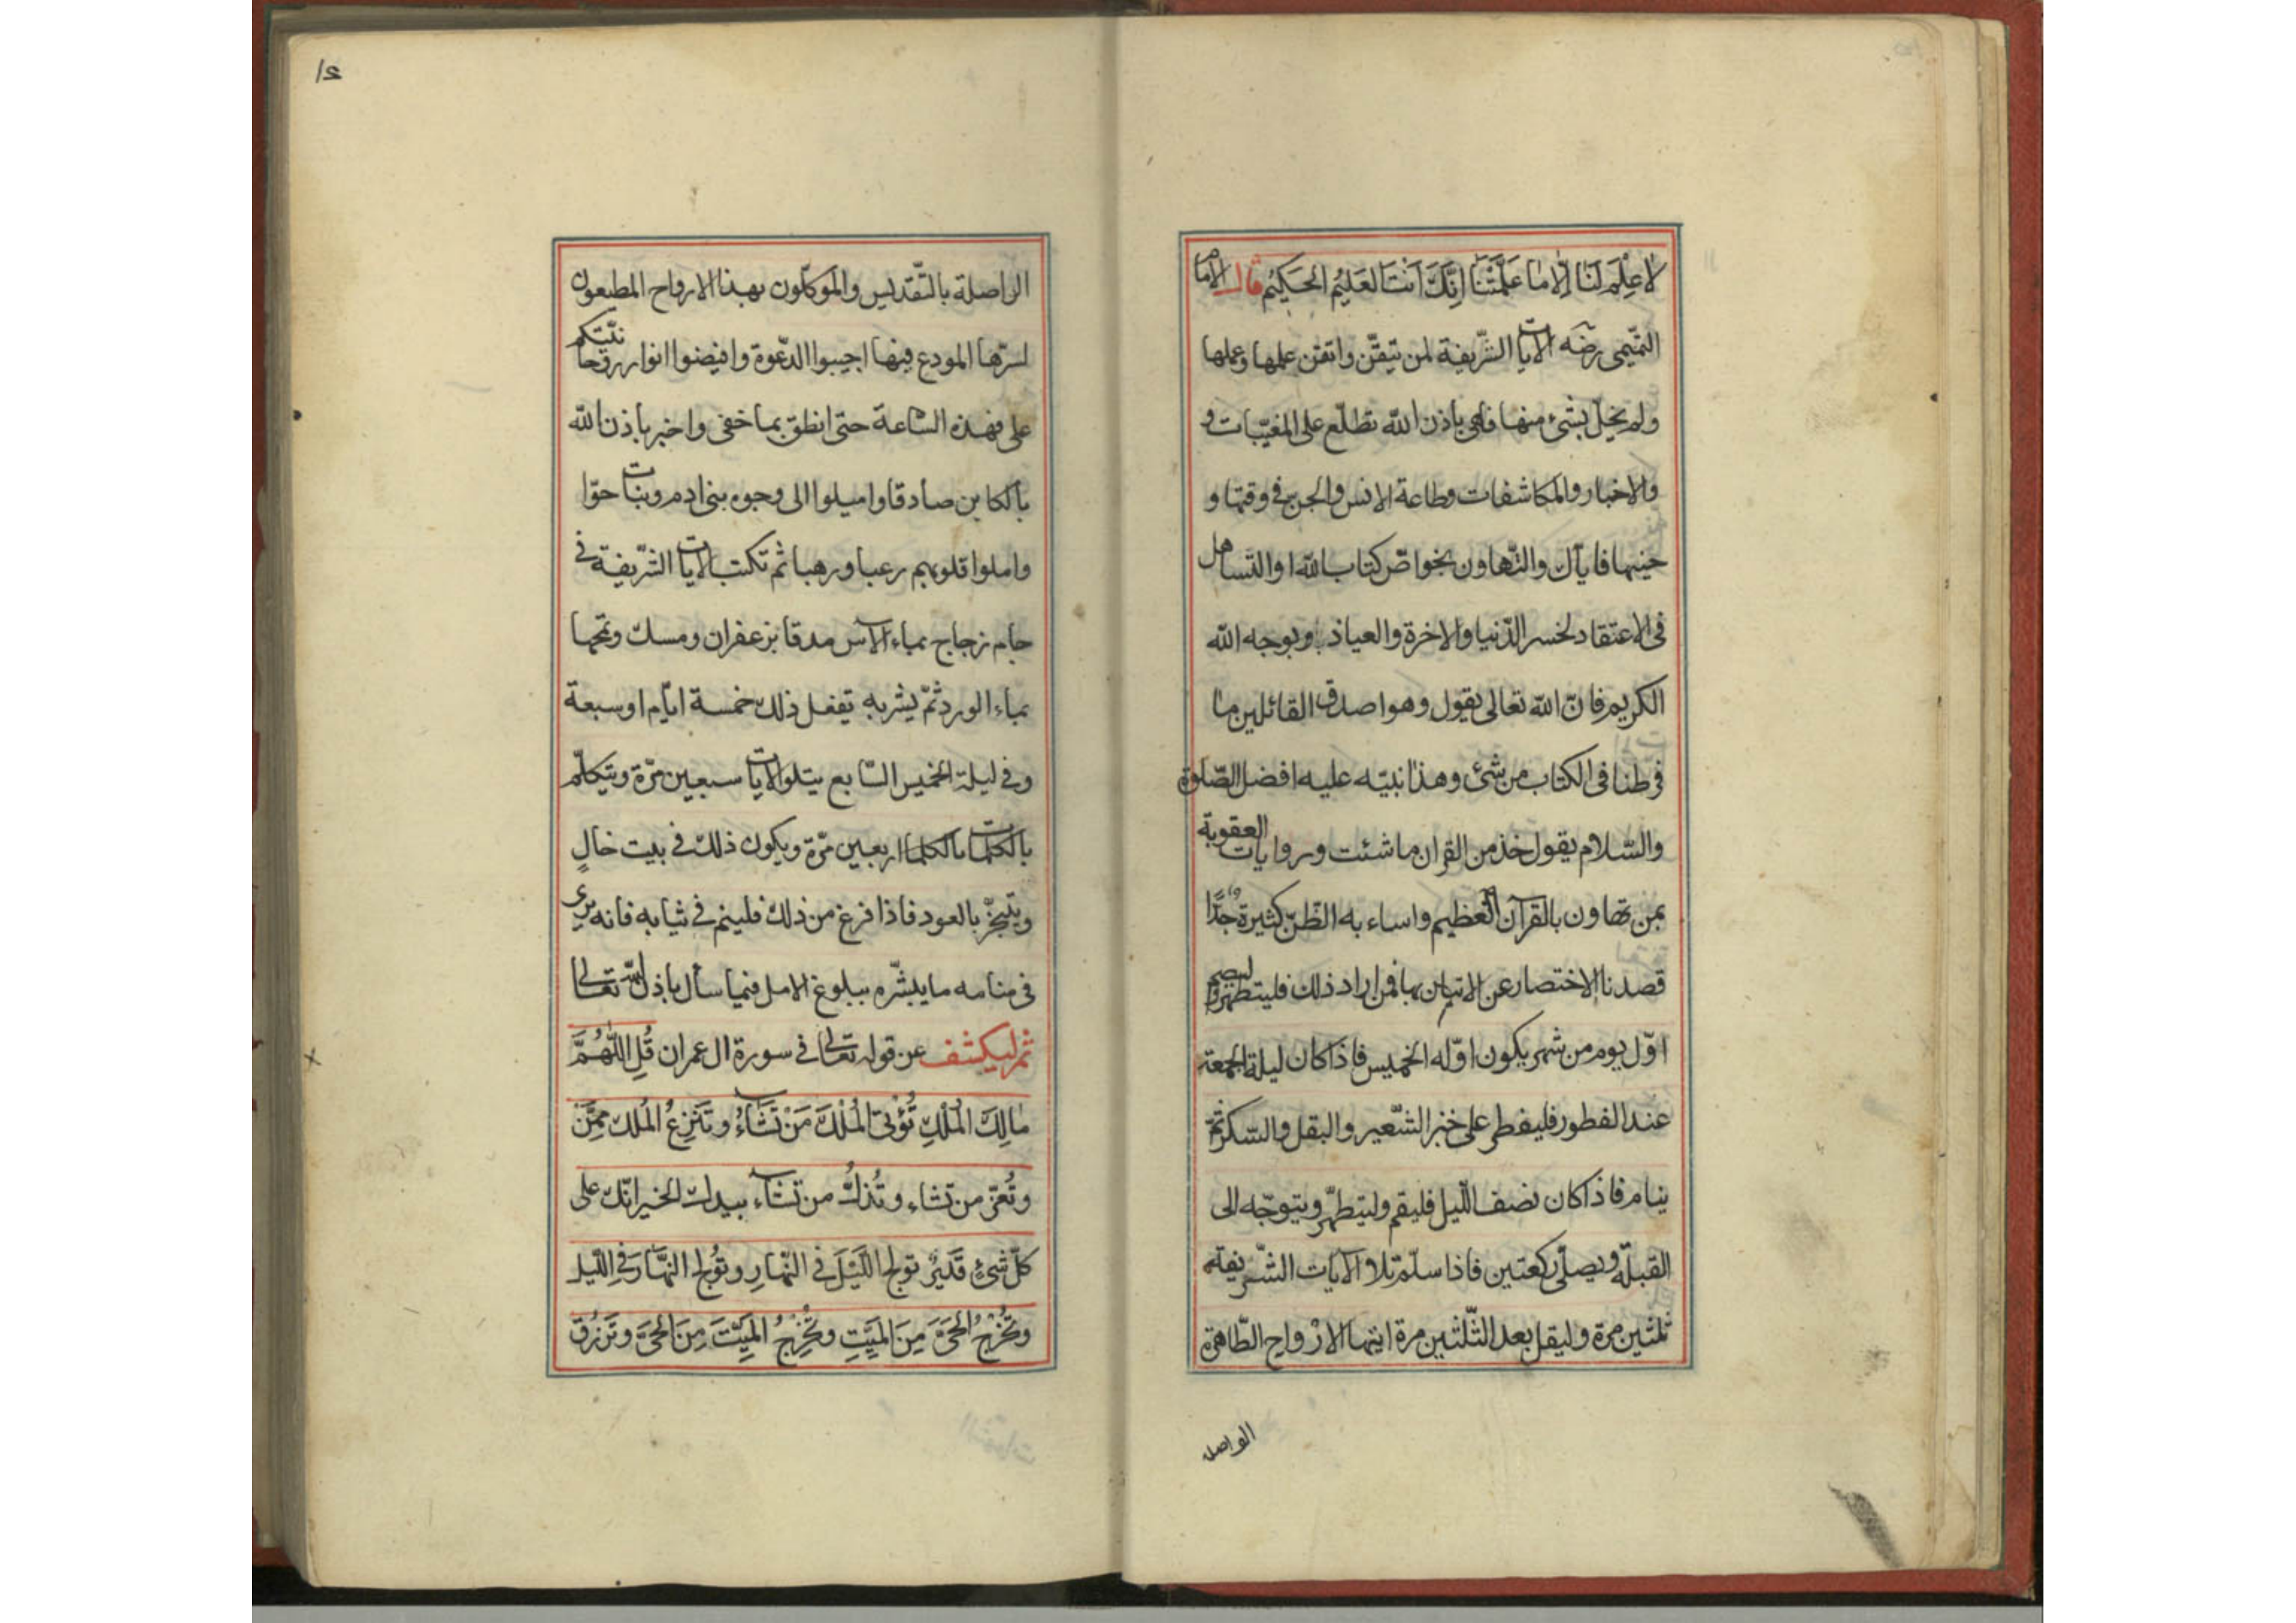 لا عِلْمَ لَنَا اِلّا مَا عَلَّمْتَنَا اِنَّكَ اَنْتَ العَلِيْمُ الحَكِيْمُ قال الامام
التّميمى رضه الآيات الشّريفة لمن تيقّن واتقن علمها وعملها
ولم يخلّ بشئ منها فاهى باذن الله تطلّع على المغيّبات و
والاخبار والمكاشفات وطاعة الانس والجن فى وقتها و
حينها فاياك والتّهاون بخواصّ كتاب الله او التساهل
فى الاعتقاد لخسر الدّنيا والاخرة والعياذ وبوجه الله
الكريم فانّ الله تعالى يقول وهو اصدق القائلين ما
فرطنا فى الكتاب من شئ وهذا نبيّه عليه افضل الصّلوة
والسّلام يقول خذ من القران ما شئت وروايات العقوبة
بمن تهاون بالقرآن العظيم واساء به الظّنّ كثيرة جدًّا
قصدنا الاختصار عن الاتيان بها فمن اراد ذلك فليتطهر وليصم
اوّل يوم من شهر يكون اوّله الخميس فاذا كان ليلة الجمعة
عند الفطور فليفطر على خبز الشّعير والبقل والسّكر ثمّ
ينام فاذا كان نصف اللّيل فليقم وليتطهّر ويتوجّه الى
القبلة ويصلّى ركعتين فاذا سلّم تلا الآيات الشّريفة
ثلثين مرة وليقل بعد الثّلثين مرة ايتها الارْواح الطّاهرة
الواصله
١٤
الواصلة بالتّقديس والموكلّون بهذا الارواح المطيعون
لسرّها المودع فيها اجيبوا الدّعوة وافيضوا انوار روحانيّتكم
على فى هذه السّاعة حتى انطق بما خفى واخبر باذن الله
بالكاين صادقا واميلوا الى وجوه بنى ادم وبنات حوّا
واملوا قلوبهم رعبا ورهبا ثم تكتب الآيات الشّريفة فى
جام زجاج بماء الآس مدقا بزعفران ومسك وتمحها
بماء الورد ثمّ يشربه تفعل ذلك خمسة ايّام او سبعة
وفى ليلة الخميس السّابع يتلو الآيات سبعين مرّة ويتكلّم
بالكلمات بالكلمات اربعين مرّة ويكون ذلك فى بيت خالٍ
ويتبخّر بالعود فاذا فرغ من ذلك فلينم فى ثيابه فانه يرى
فى منامه ما يبشّره ببلوغ الامل فيما سأل باذن الله تعالى
ثم ليكشف عن قوله تعالى فى سورة ال عمران قُلِ اللّٰهُمَّ
مٰالِكَ الْمُلْكِ تُؤْتِى الْمُلْكَ مَنْ تَشَاءُ وتَنْزِعُ المُلْكَ مِمَّنْ تشاء
وتُعزّ من تشاء وتُذلّ من تشاء بيدك الخير انّك على
كلّ شئٍ قَدِيرٌ تولج اللَّيْلَ فى النّهارِ وتُولج النّهَارَ فى اللّيل
وتُخْرِجُ الحَىَّ مِنَ المَيّتِ وتُخْرِجُ المَيِّتَ مِنَ الحَىِّ وتَرْزُقُ